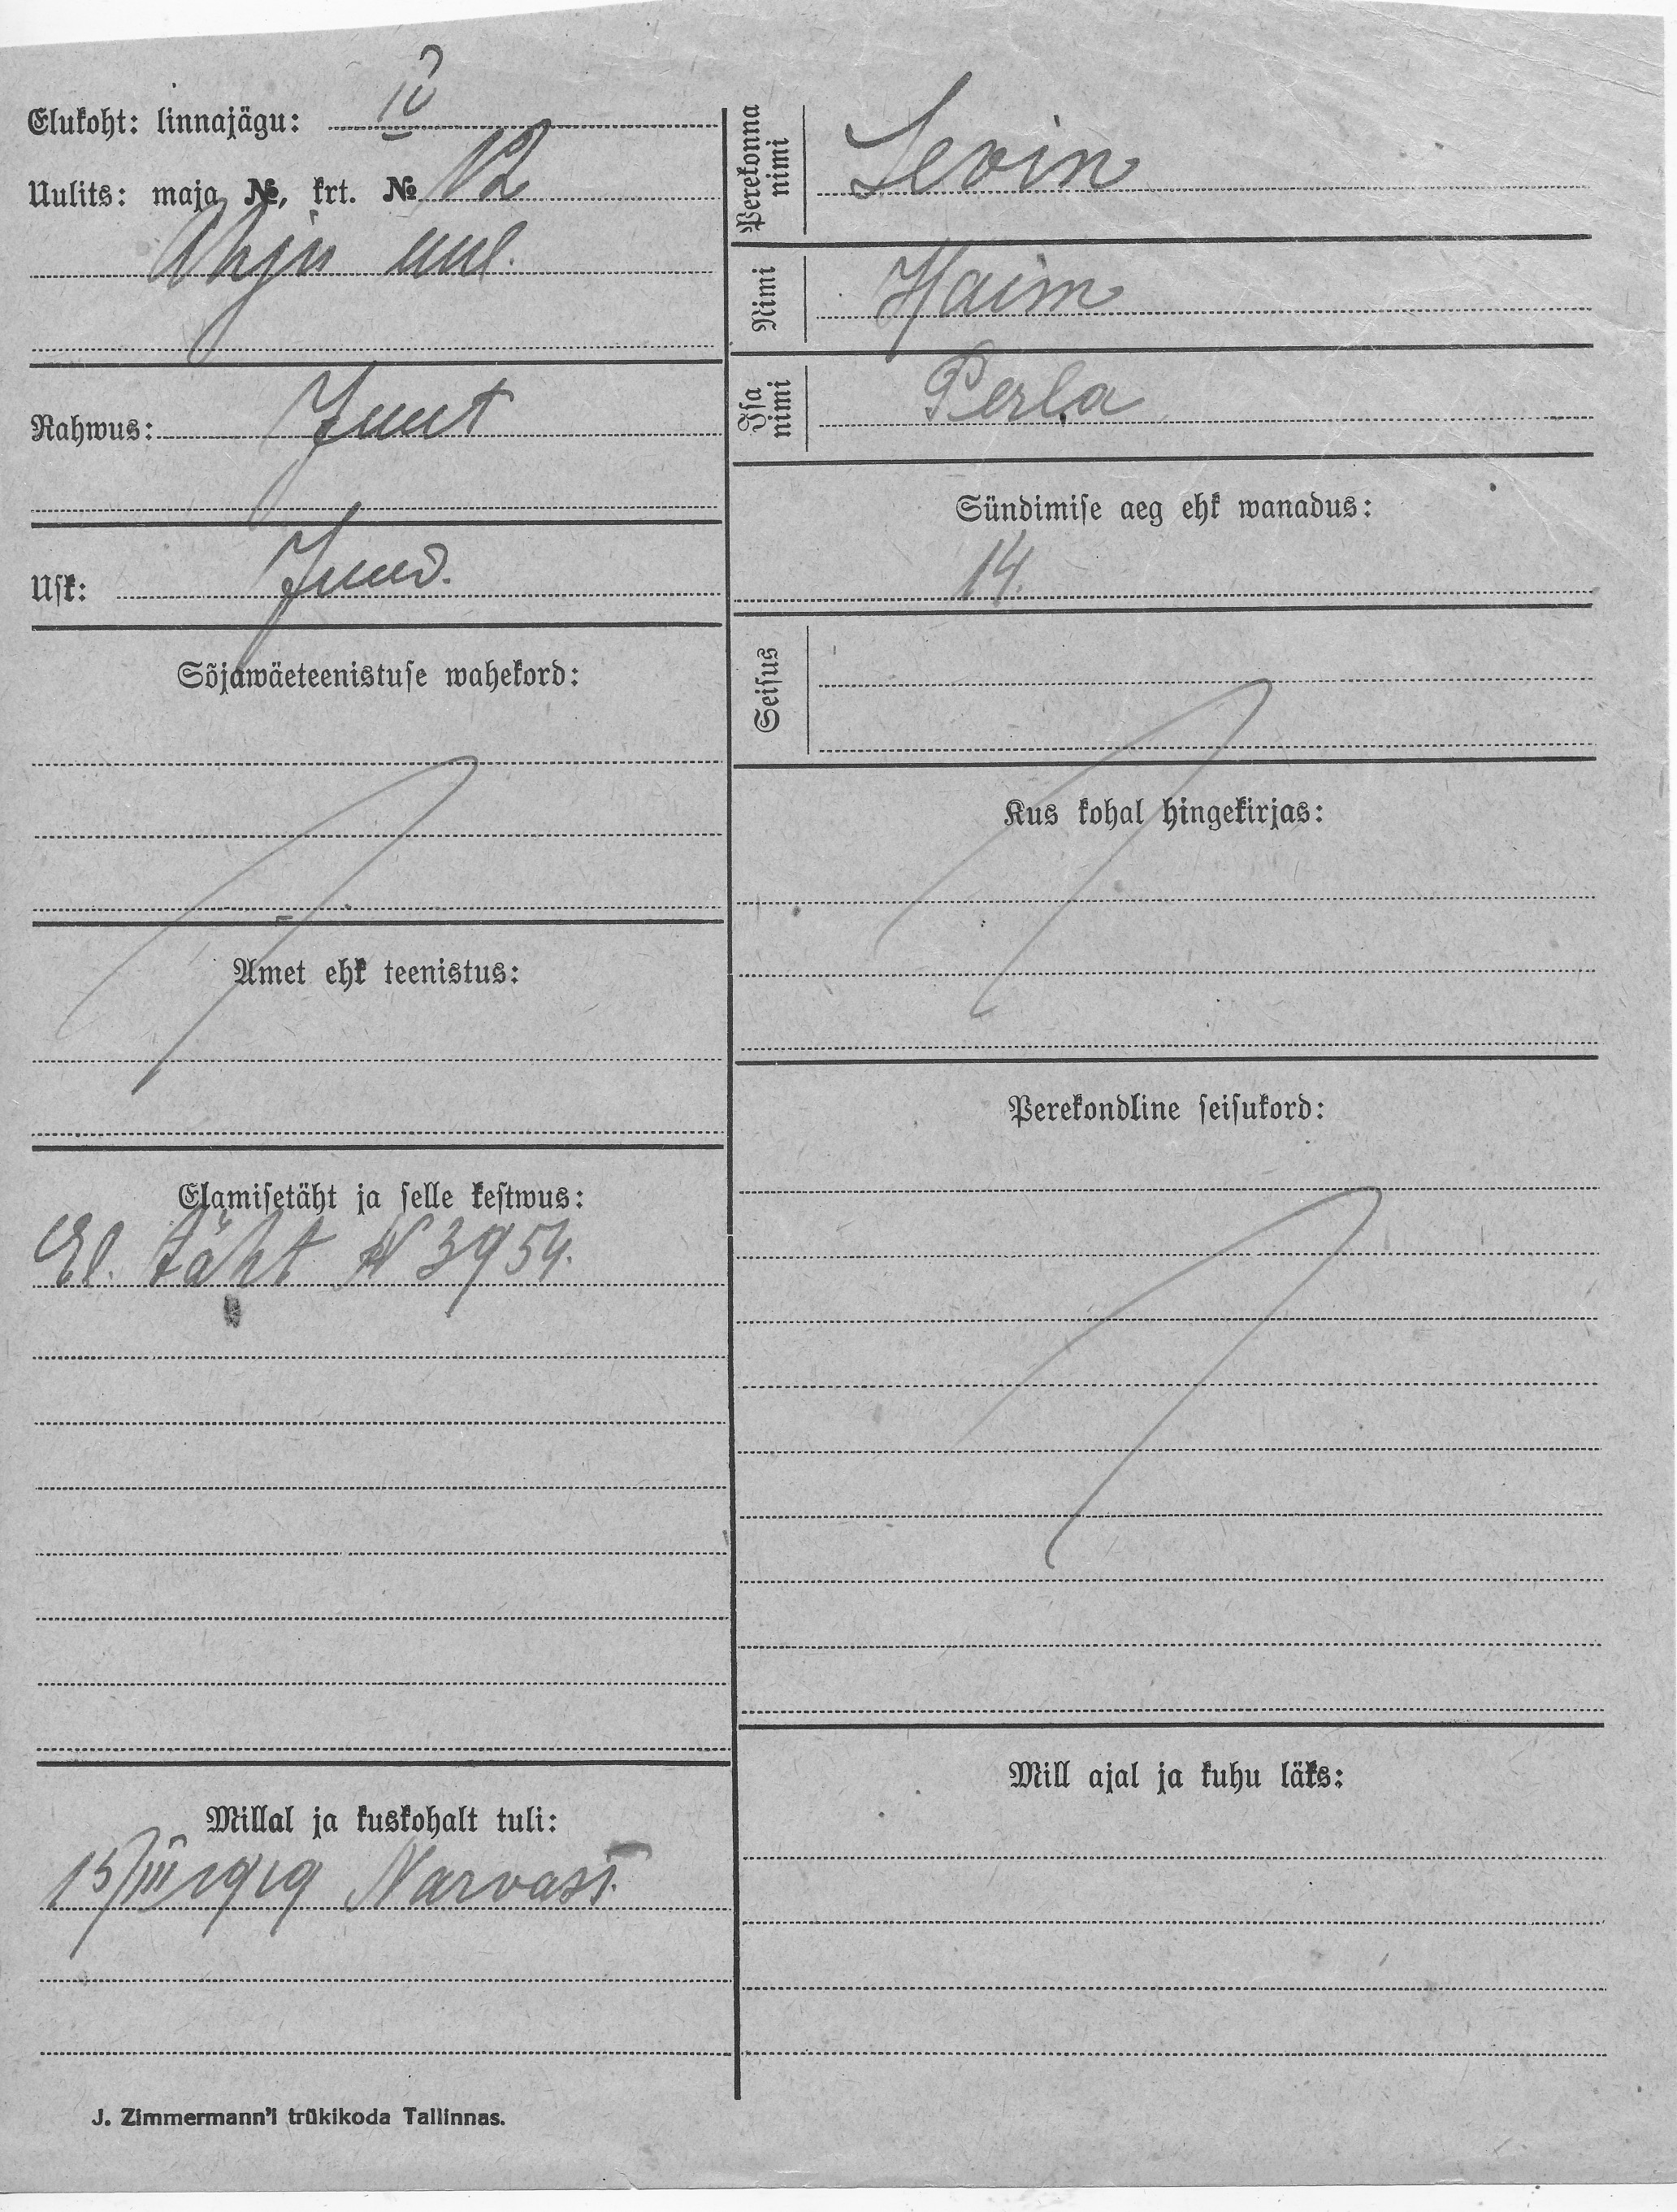 Elukoht: linnajägu: IV
Uulits: maja №, krt. № 12
Ahju uul.
Rahwus: Juut
Usk: Juud.
Sõjawäeteenistuse wahekord:
Amet ehk teenistus:
Elamisetäht ja selle kestwus:
El. täht N 3954.
Millal ja kuskohalt tuli:
15/III 1919 Narvast.
J. Zimmermann'i trükikoda Tallinnas.
Perekonna nimi Levin
Nimi Haim
Isa nimi Perla
Sündimise aeg ehk wanadus:
14.
Seisus
Kus kohal hingekirjas:
Perekondline seisukord:
Mill ajal ja kuhu läks: